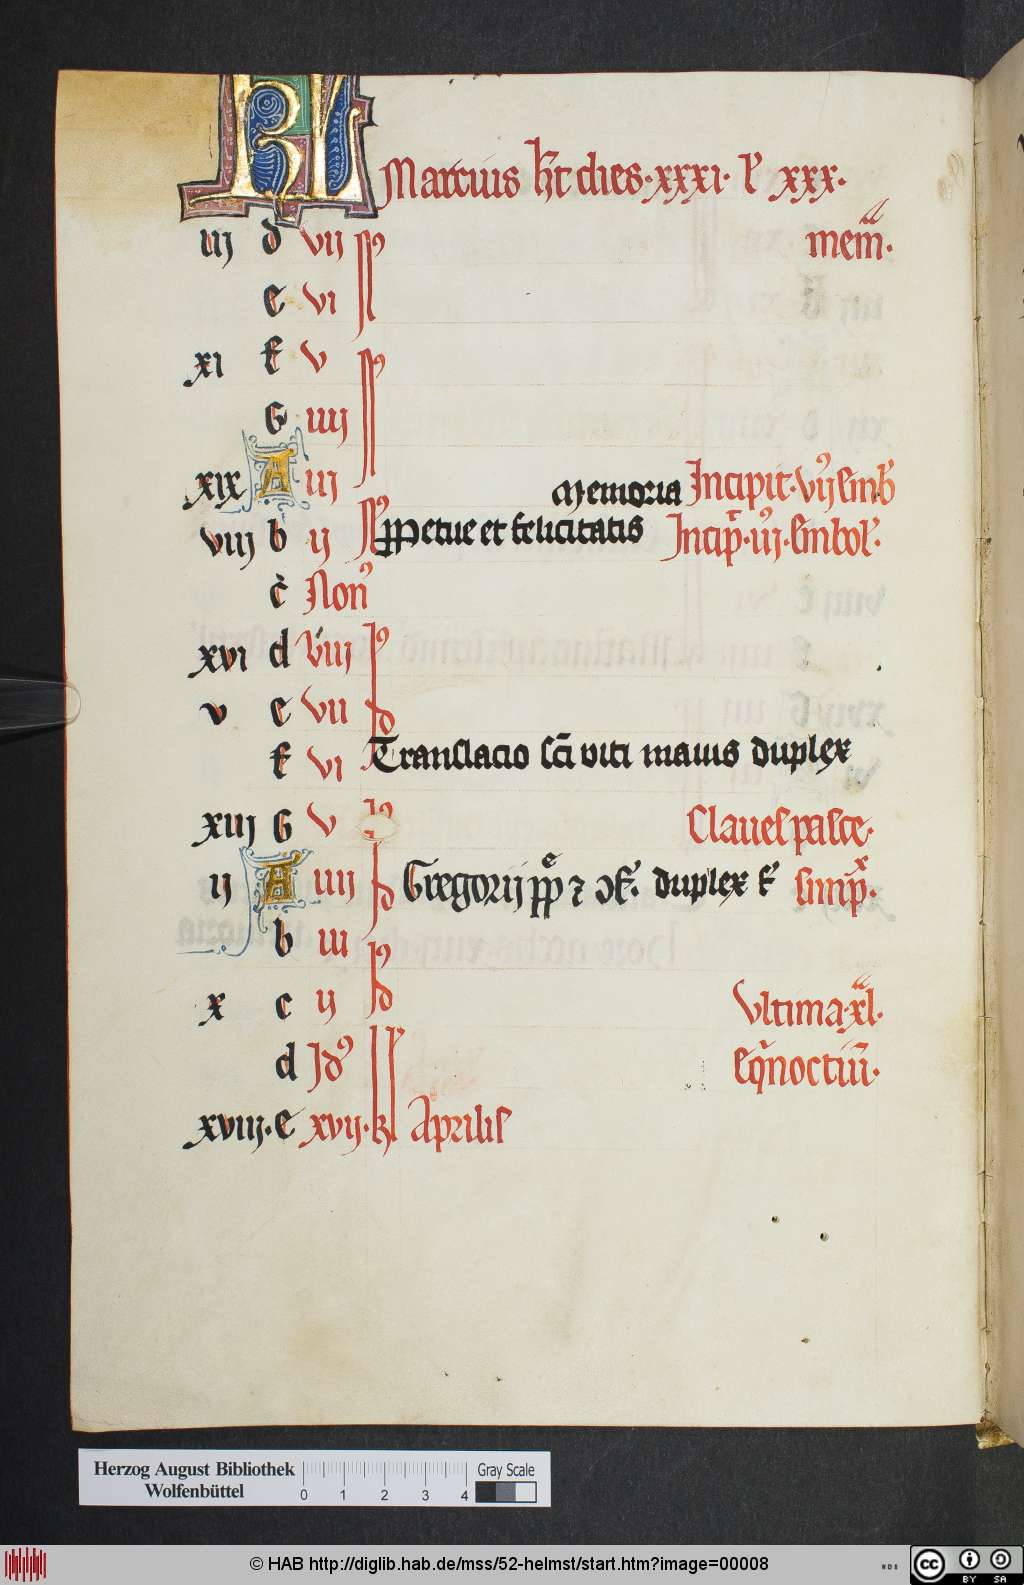 KL Marcius hт dies·xxxi· lͬ xxx·
iij d vij mem̄·
e vi
xi f v
G iiij
xix A iij Memoria Incipit·vij embꝰ
viij b ij ꝑpetue et felicitatis Incip̄·iij·embol'·
c Nonꝰ
xvi d viij
v e vii
f vi Translacio sc̄i viti mauus duplex
xiij G v Claues pasce·
ij A iiij Gregorij pp̄e ⁊ ↄf'· duplex f
b iii
x c ij Vltima·xl·
d Idꝰ Eq̄noctiū·
xviij·e xvij·kl Aprilis
Herzog August Bibliothek
Wolfenbüttel
0 1 2 3 4
Gray Scale
© HAB http://diglib.hab.de/mss/52-helmst/start.htm?image=00008
WDB
cc BY SA